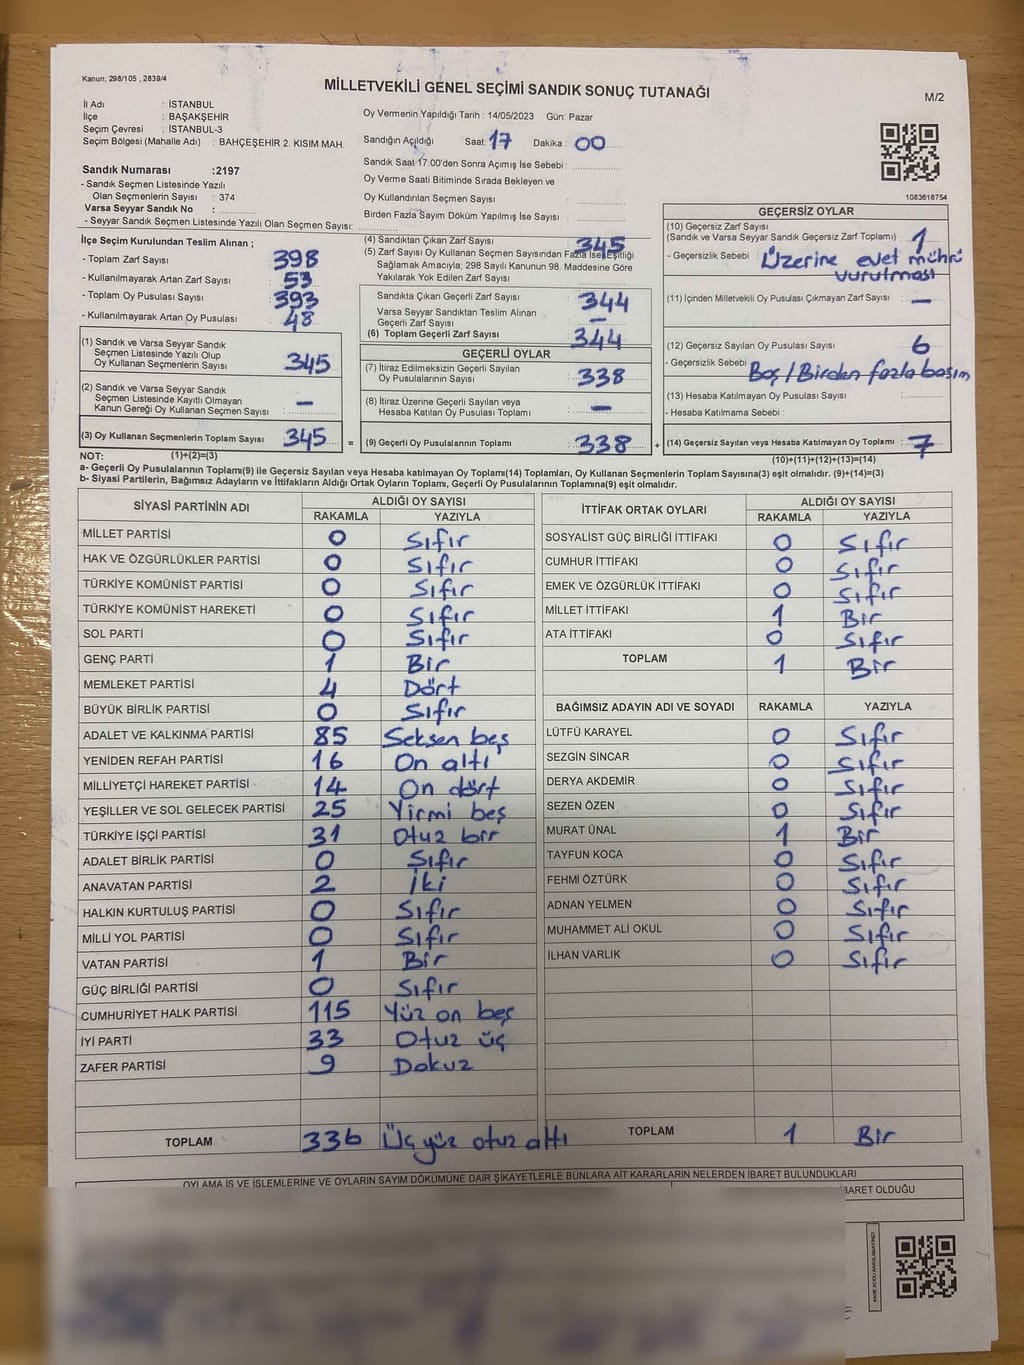 Kanun; 298/105 , 2839/4
MİLLETVEKİLİ GENEL SEÇİMİ SANDIK SONUÇ TUTANAĞI
M/2
İl Adı : İSTANBUL
İlçe : BAŞAKŞEHİR
Seçim Çevresi : İSTANBUL-3
Seçim Bölgesi (Mahalle Adı) : BAHÇEŞEHİR 2. KISIM MAH.
Oy Vermenin Yapıldığı Tarih : 14/05/2023 Gün: Pazar
Sandığın Açıldığı Saat: 17 Dakika : 00
Sandık Saat 17.00'den Sonra Açımış İse Sebebi :
Oy Verme Saati Bitiminde Sırada Bekleyen ve
Oy Kullandırılan Seçmen Sayısı :
Birden Fazla Sayım Döküm Yapılmış İse Sayısı :
1083618754
Sandık Numarası :2197
- Sandık Seçmen Listesinde Yazılı
Olan Seçmenlerin Sayısı : 374
Varsa Seyyar Sandık No :
- Seyyar Sandık Seçmen Listesinde Yazılı Olan Seçmen Sayısı:
İlçe Seçim Kurulundan Teslim Alınan ;
- Toplam Zarf Sayısı : 398
- Kullanılmayarak Artan Zarf Sayısı : 53
- Toplam Oy Pusulası Sayısı : 393
- Kullanılmayarak Artan Oy Pusulası : 48
(1) Sandık ve Varsa Seyyar Sandık
Seçmen Listesinde Yazılı Olup
Oy Kullanan Seçmenlerin Sayısı : 345
(2) Sandık ve Varsa Seyyar Sandık
Seçmen Listesinde Kayıtlı Olmayan
Kanun Gereği Oy Kullanan Seçmen Sayısı : –
(3) Oy Kullanan Seçmenlerin Toplam Sayısı : 345 =
(4) Sandıktan Çıkan Zarf Sayısı : 345
(5) Zarf Sayısı Oy Kullanan Seçmen Sayısından Fazla İse, Eşitliği
Sağlamak Amacıyla, 298 Sayılı Kanunun 98. Maddesine Göre
Yakılarak Yok Edilen Zarf Sayısı :
Sandıkta Çıkan Geçerli Zarf Sayısı : 344
Varsa Seyyar Sandıktan Teslim Alınan
Geçerli Zarf Sayısı : –
(6) Toplam Geçerli Zarf Sayısı : 344
GEÇERLİ OYLAR
(7) İtiraz Edilmeksizin Geçerli Sayılan
Oy Pusulalarının Sayısı : 338
(8) İtiraz Üzerine Geçerli Sayılan veya
Hesaba Katılan Oy Pusulası Toplamı : –
(9) Geçerli Oy Pusulalarının Toplamı : 338 +
GEÇERSİZ OYLAR
(10) Geçersiz Zarf Sayısı
(Sandık ve Varsa Seyyar Sandık Geçersiz Zarf Toplamı) : 1
- Geçersizlik Sebebi : Üzerine evet mührü
vurulması
(11) İçinden Milletvekili Oy Pusulası Çıkmayan Zarf Sayısı : –
(12) Geçersiz Sayılan Oy Pusulası Sayısı : 6
- Geçersizlik Sebebi : Boş/Birden fazla basım
(13) Hesaba Katılmayan Oy Pusulası Sayısı :
- Hesaba Katılmama Sebebi :
(14) Geçersiz Sayılan veya Hesaba Katılmayan Oy Toplamı : 7
NOT: (1)+(2)=(3)
(10)+(11)+(12)+(13)=(14)
a- Geçerli Oy Pusulalarının Toplamı(9) ile Geçersiz Sayılan veya Hesaba katılmayan Oy Toplamı(14) Toplamları, Oy Kullanan Seçmenlerin Toplam Sayısına(3) eşit olmalıdır. (9)+(14)=(3)
b- Siyasi Partilerin, Bağımsız Adayların ve İttifakların Aldığı Ortak Oyların Toplamı, Geçerli Oy Pusulalarının Toplamına(9) eşit olmalıdır.
SİYASİ PARTİNİN ADI ALDIĞI OY SAYISI
RAKAMLA YAZIYLA
MİLLET PARTİSİ 0 Sıfır
HAK VE ÖZGÜRLÜKLER PARTİSİ 0 Sıfır
TÜRKİYE KOMÜNİST PARTİSİ 0 Sıfır
TÜRKİYE KOMÜNİST HAREKETİ 0 Sıfır
SOL PARTİ 0 Sıfır
GENÇ PARTİ 1 Bir
MEMLEKET PARTİSİ 4 Dört
BÜYÜK BİRLİK PARTİSİ 0 Sıfır
ADALET VE KALKINMA PARTİSİ 85 Seksen beş
YENİDEN REFAH PARTİSİ 16 On altı
MİLLİYETÇİ HAREKET PARTİSİ 14 On dört
YEŞİLLER VE SOL GELECEK PARTİSİ 25 Yirmi beş
TÜRKİYE İŞÇİ PARTİSİ 31 Otuz bir
ADALET BİRLİK PARTİSİ 0 Sıfır
ANAVATAN PARTİSİ 2 İki
HALKIN KURTULUŞ PARTİSİ 0 Sıfır
MİLLİ YOL PARTİSİ 0 Sıfır
VATAN PARTİSİ 1 Bir
GÜÇ BİRLİĞİ PARTİSİ 0 Sıfır
CUMHURİYET HALK PARTİSİ 115 Yüz on beş
İYİ PARTİ 33 Otuz üç
ZAFER PARTİSİ 9 Dokuz
TOPLAM 336 Üç yüz otuz altı
İTTİFAK ORTAK OYLARI ALDIĞI OY SAYISI
RAKAMLA YAZIYLA
SOSYALİST GÜÇ BİRLİĞİ İTTİFAKI 0 Sıfır
CUMHUR İTTİFAKI 0 Sıfır
EMEK VE ÖZGÜRLÜK İTTİFAKI 0 Sıfır
MİLLET İTTİFAKI 1 Bir
ATA İTTİFAKI 0 Sıfır
TOPLAM 1 Bir
BAĞIMSIZ ADAYIN ADI VE SOYADI RAKAMLA YAZIYLA
LÜTFÜ KARAYEL 0 Sıfır
SEZGİN SİNCAR 0 Sıfır
DERYA AKDEMİR 0 Sıfır
SEZEN ÖZEN 0 Sıfır
MURAT ÜNAL 1 Bir
TAYFUN KOCA 0 Sıfır
FEHMİ ÖZTÜRK 0 Sıfır
ADNAN YELMEN 0 Sıfır
MUHAMMET ALİ OKUL 0 Sıfır
İLHAN VARLIK 0 Sıfır
TOPLAM 1 Bir
OYLAMA İŞ VE İŞLEMLERİNE VE OYLARIN SAYIM DÖKÜMÜNE DAİR ŞİKAYETLERLE BUNLARA AİT KARARLARIN NELERDEN İBARET BULUNDUKLARI
İBARET OLDUĞU